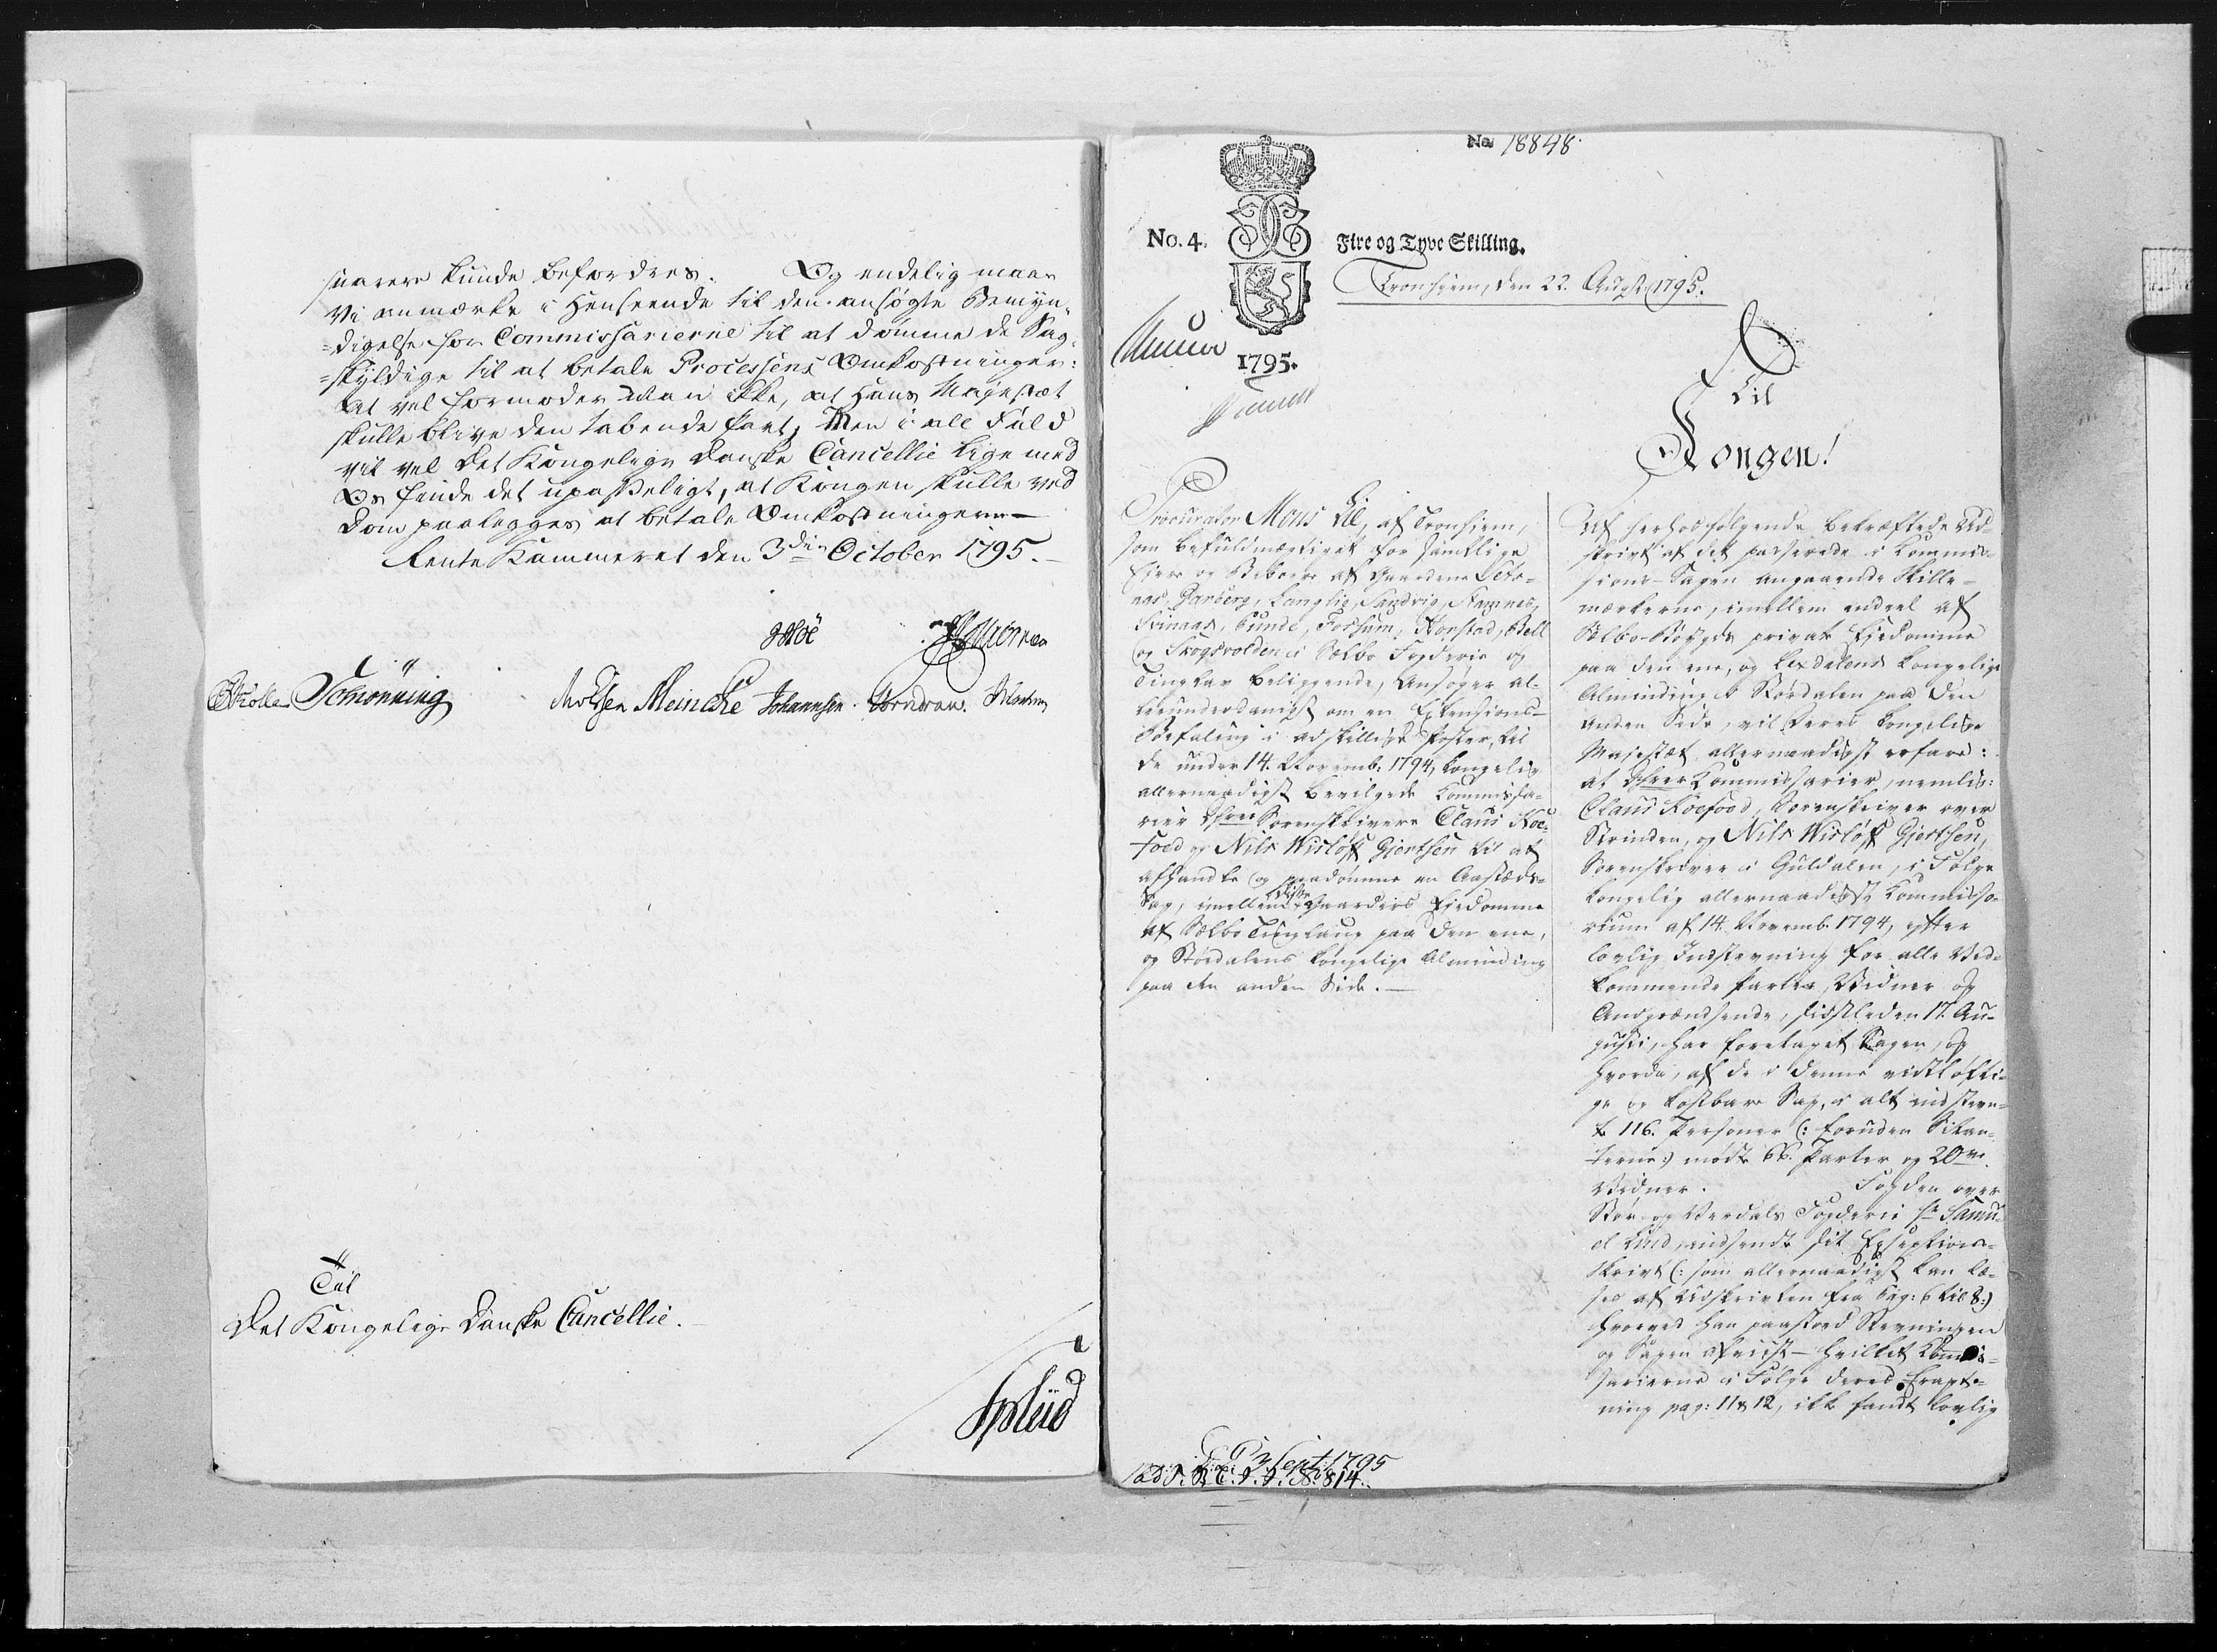 snarere kunde befordres. Og endelig maae
Vi anmærke i Henseende til den ansøgte Bemyn-
=digelse for Commissarierne til at dømme de Sag-
=skyldige til at betale Processens Omkostninger:
At vel formoder Man ikke, at Hans Majestæt
skulle blive den tabende Part, Men i all Fald
vil vel Det Kongelige Danske Cancellie lige med
Os finde det upasseligt, at Kongen skulle ved
Dom paalegges at betale Omkostningerne
Rente Kammeret den 3die October 1795.
Schiønning Meincke Johannsen
Til
Det Kongelige Danske Cancellie.
No. 18848
No. 4. Fire og Tyve Skilling.
Tronhiem, den 22 August 1795.
1795.
Til
Kongen!
Procurator Mons Lie, af Tronhiem,
som befuldmægtiget for samtlige
Eiere og Beboere af Gaardene Seto-
aas, Garberg, Langlie, Sandvig, Stamnes,
Evinaas, Bunde, Fossum, Horstad, Bell
og Skogsvolden i Sælbo Fogderie og
Tinglav beliggende, Ansøger al-
lerunderdanigst om en Extensions-
Befaling i adskillige Poster, til
de under 14. Novemb: 1794, kongelig
allernaadigst bevilgede Kommissa-
rier Hrrer Sorenskrivere Claus Koe-
foed og Nils Wisløff Gjertsen til at
afhandle og paadømme en Aastæds-
Sag, imellem disse Gaarders Eiedomme
af Sælbo Tinglaug paa den ene,
og Størdalens kongelige Alminding
paa den anden Side.
Af herhosfølgende bekræftede Ud-
skrivt af det passerede i Kommis-
sions-Sagen angaaende Skille-
mærkerne, imellem endeel af
Sælbo-Bøygds private Eiedomme
paa den ene, og Lexdalens kongelige
Alminding i Størdalen paa den
anden Side, vil Deres kongelige
Majestæt allernaadigst erfare:
at Hrrer Kommissarier, nemlig:
Claus Koefoed, Sorenskriver over
Strinden, og Nils Wisløff Gjertsen,
Sorenskriver i Guldalen, i Følge
kongelig allernaadigst Kommisso-
rium af 14. Novemb. 1794, efter
lovlig Indstevning for alle Ved-
kommende Parter, Vidner og
Angrændsende, sidstleden 17. Au-
gusti, har foretaget Sagen, og
hvorda, af de i denne vidtløfti-
ge og kostbare Sag, i alt indstevn-
te 116. Personer (: foruden Citan-
terne :) mødte 66. Parter og 20ve
Vidner. Fogden over
Stør- og Verdals Fogderie Hr Samu-
el Lund, indsendte sit Exseptions-
Skrivt (: som allernaadigst kan læ-
ses af Udskrivten fra pag: 6 til 8 :)
hvorved han paastoed Stevningen
og Sagen afviist - hvilket Kommis-
sarierne i Følge deres Eragt-
ning pag: 11 & 12, ikke fandt lovlig
3 Sept. 1795
No 814.